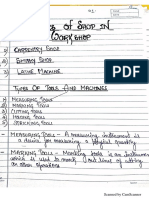 Types of Shop in
Workshop
1) Carpentry Shop
2) Fitting Shop
3) Lathe Machine
Types Of Tools And Machines
1) Measuring Tools
2) Marking Tools
3) Cutting Tools
5) Striking Tools
1) Measuring Tools - A measuring instrument is
a device for measuring a physical quantity
2) Marking Tools - Marking tools is an instrument
which is used to mark
Scanned by CamScanner